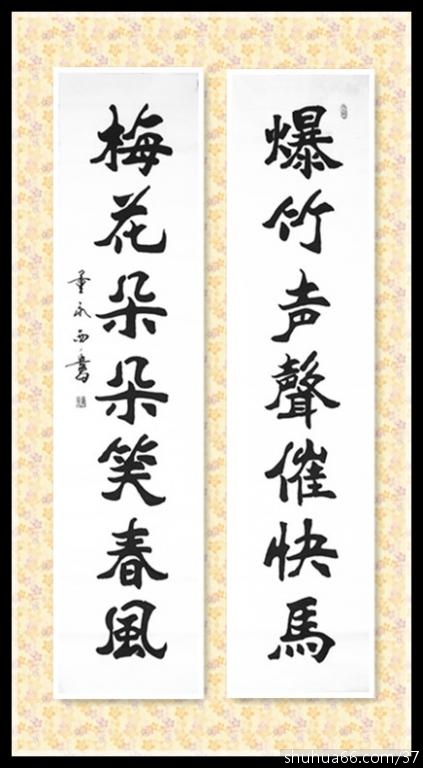 爆竹声聲催快馬
梅花朵朵笑春風
董永西書
shuhua66.com/37